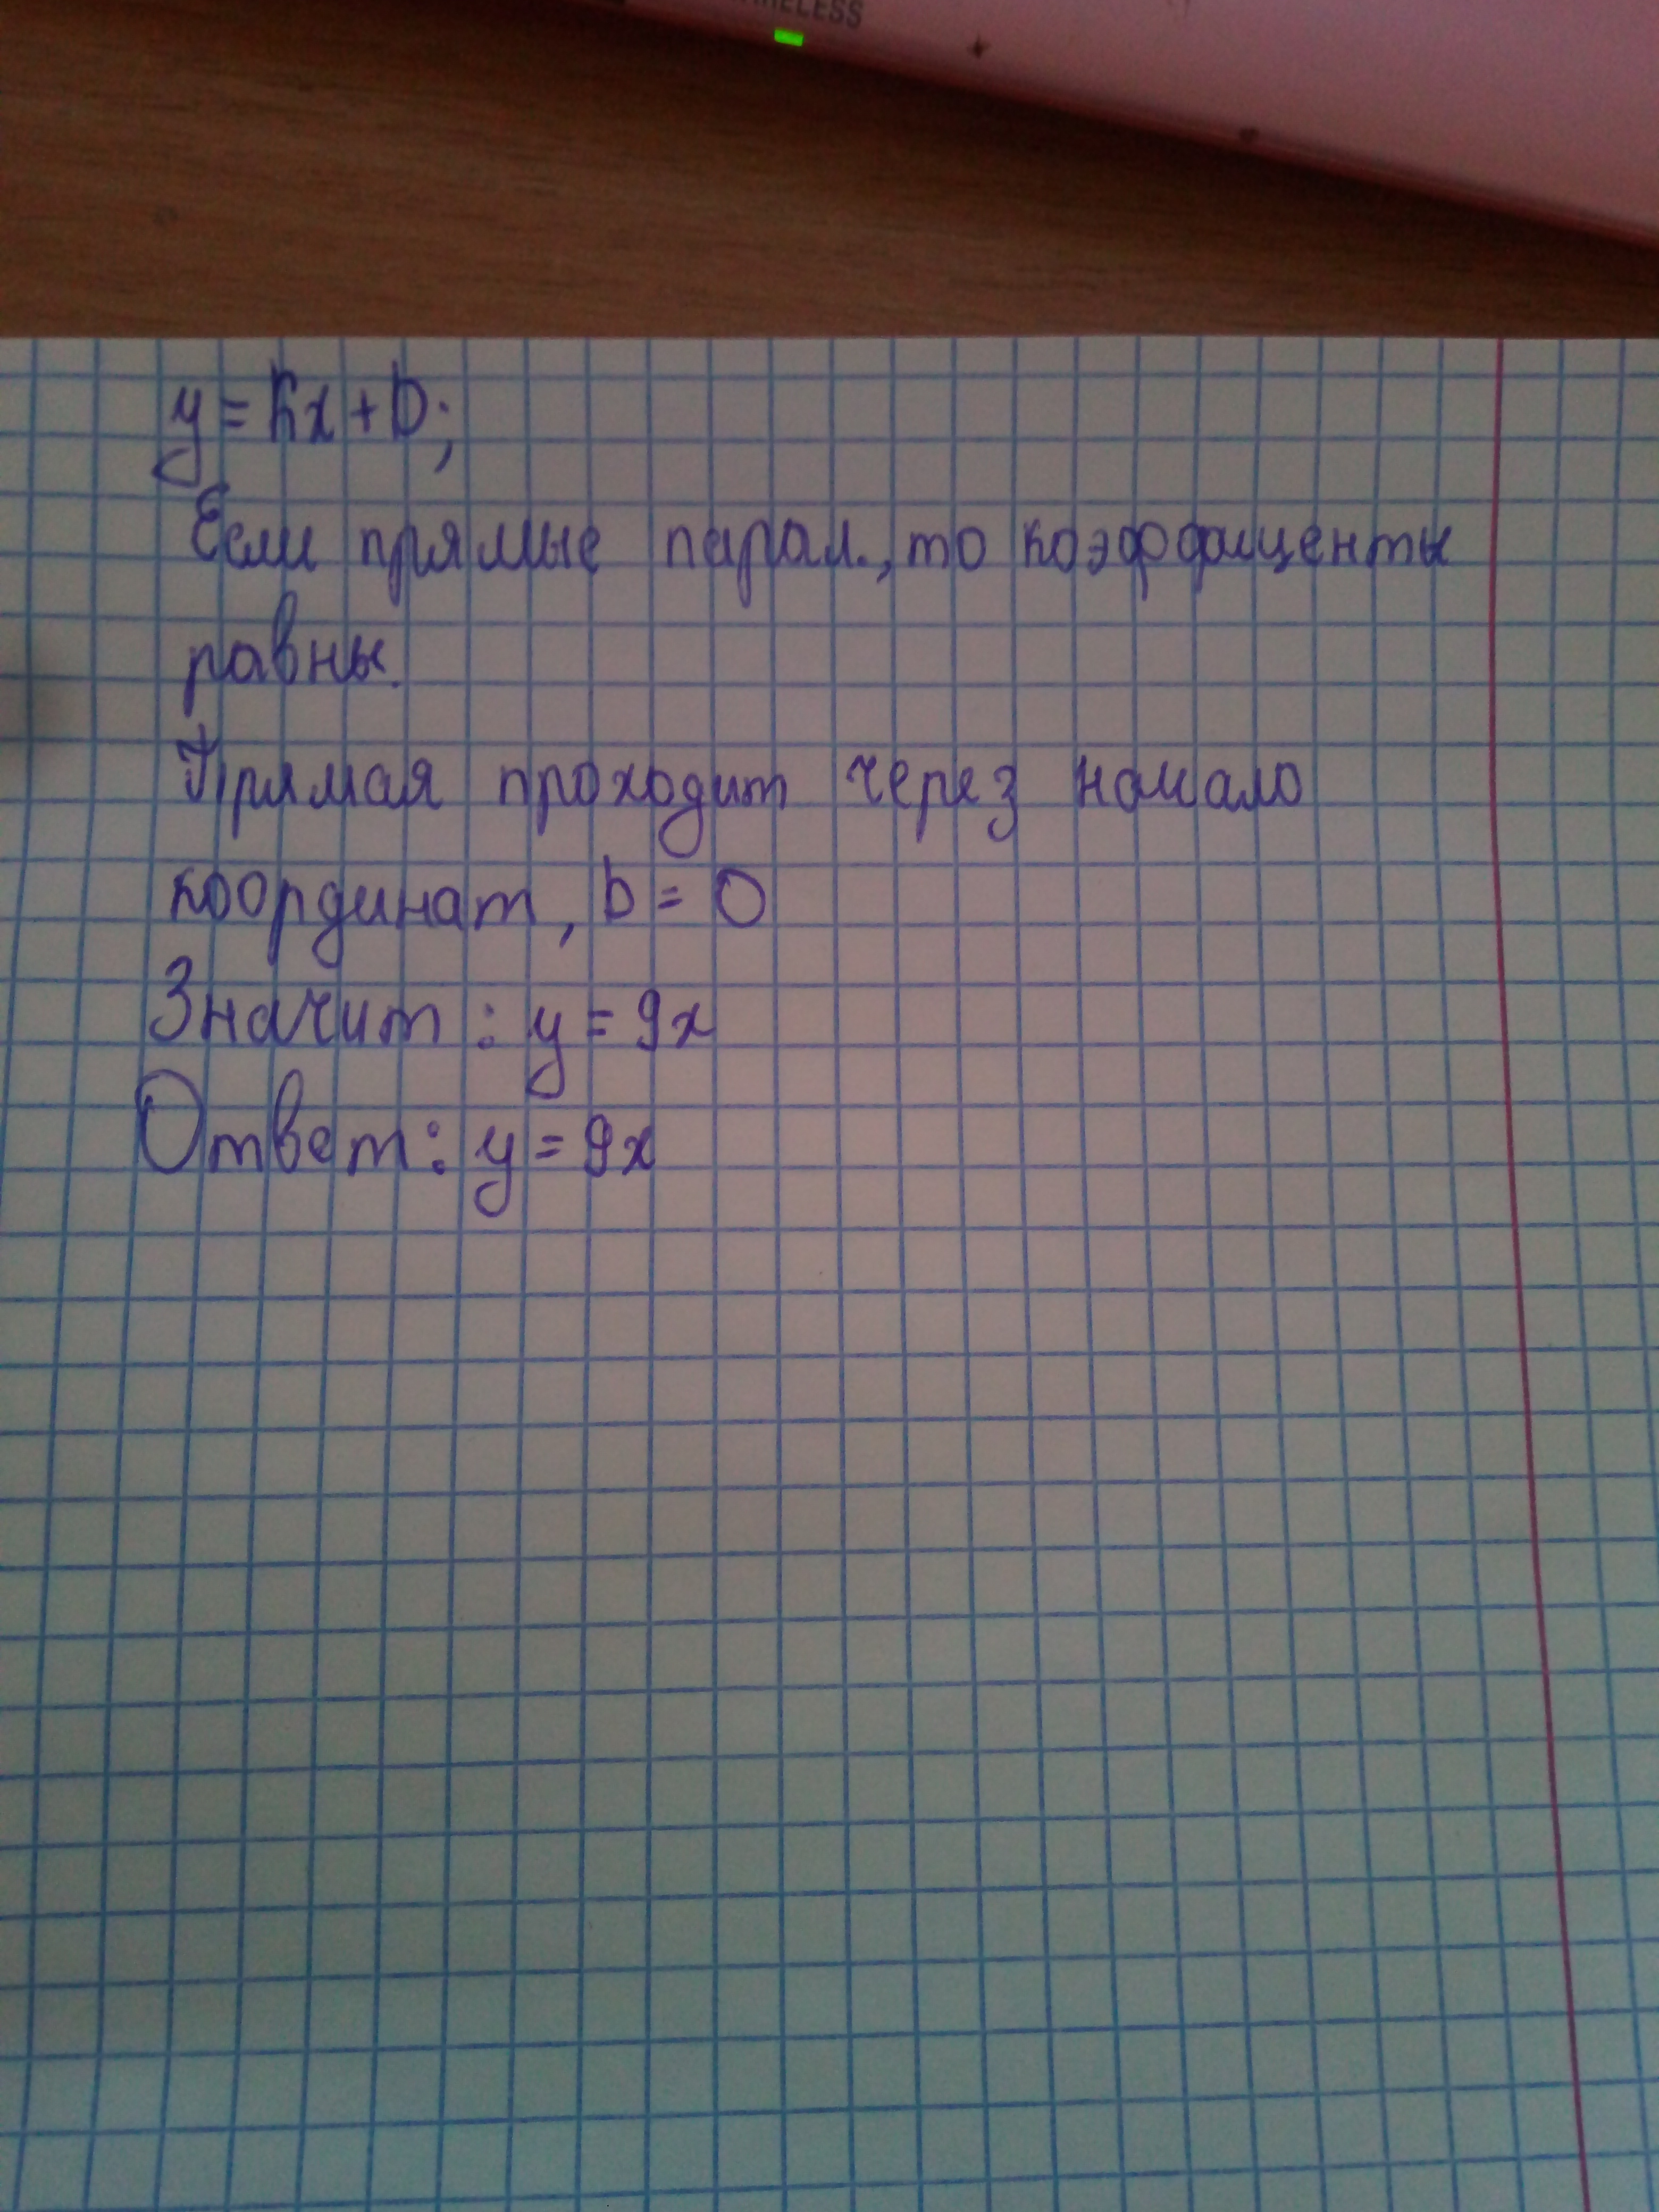 RELESS
y = kx + b;
Если прямые парал., то коэффиценты
равны.
Прямая проходит через начало
координат, b = 0
Значит : y = 9x
Ответ: y = 9x